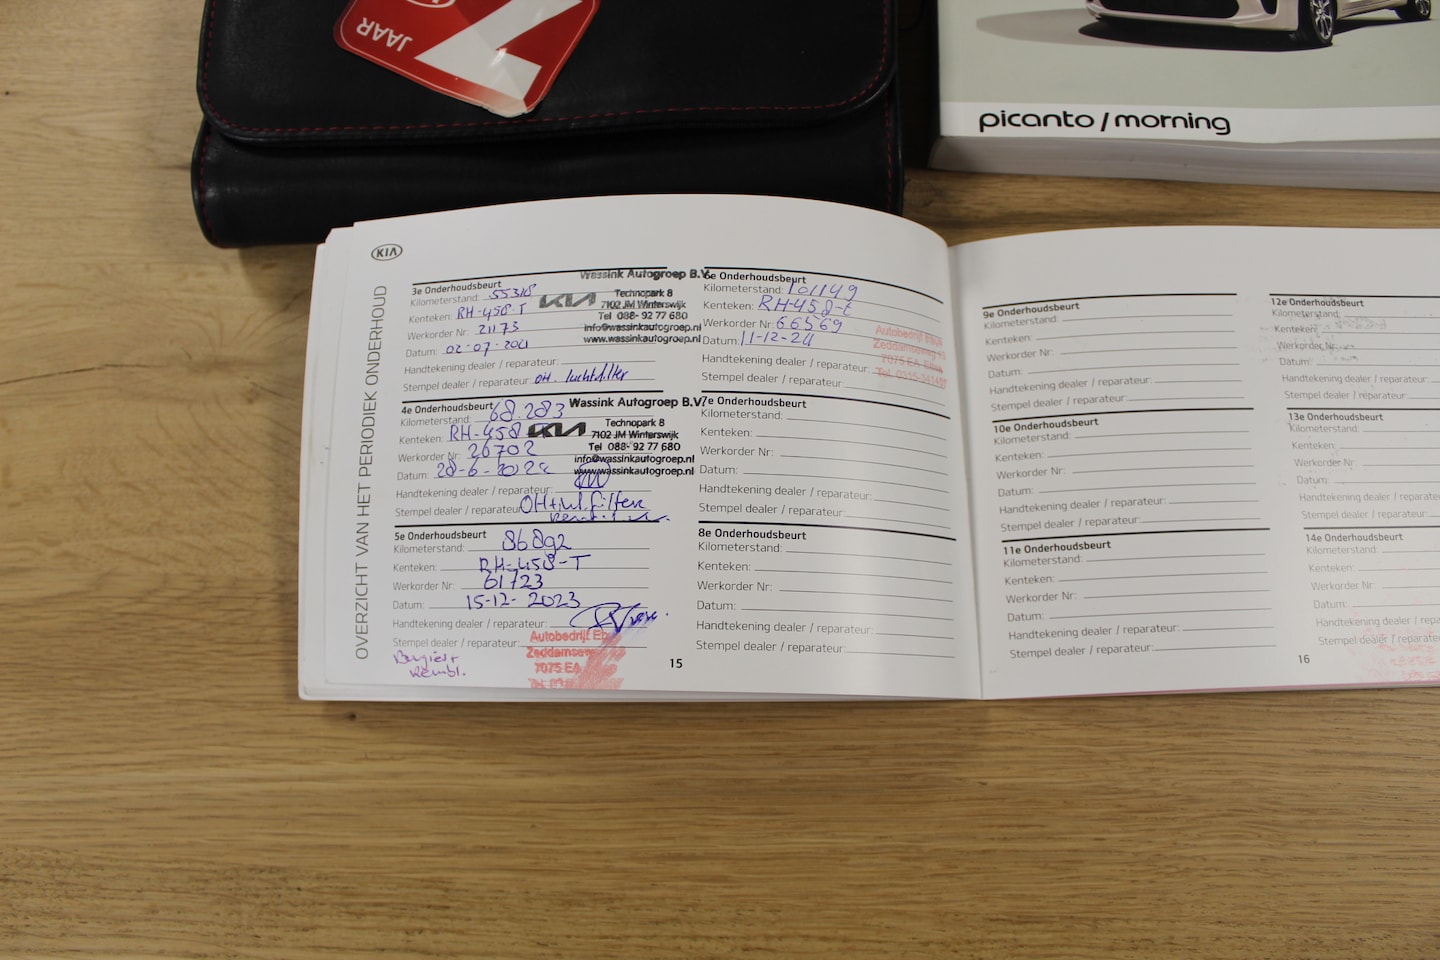 JAAR
picanto / morning
KIA
OVERZICHT VAN HET PERIODIEK ONDERHOUD
3e Onderhoudsbeurt
Kilometerstand: 55318
Kenteken: RH-458-T
Werkorder Nr: 21173
Datum: 02-07-2021
Handtekening dealer / reparateur:
Stempel dealer / reparateur: OH. luchtfilter
Wassink Autogroep B.V.
KIA
Technopark 8
7102 JM Winterswijk
Tel 088- 92 77 680
info@wassinkautogroep.nl
www.wassinkautogroep.nl
4e Onderhoudsbeurt
Kilometerstand: 68.283
Kenteken: RH-458
Werkorder Nr: 26702
Datum: 28-6-2022
Handtekening dealer / reparateur:
Stempel dealer / reparateur:
Wassink Autogroep B.V.
KIA
Technopark 8
7102 JM Winterswijk
Tel 088- 92 77 680
info@wassinkautogroep.nl
www.wassinkautogroep.nl
5e Onderhoudsbeurt
Kilometerstand: 86892
Kenteken: RH-458-T
Werkorder Nr: 61723
Datum: 15-12-2023
Handtekening dealer / reparateur:
Stempel dealer / reparateur:
Autobedrijf
7075 EA
15
6e Onderhoudsbeurt
Kilometerstand: 101149
Kenteken: RH-458-t
Werkorder Nr: 66569
Datum: 11-12-24
Handtekening dealer / reparateur:
Stempel dealer / reparateur:
Autobedrijf
Zeddamseweg
7075 EA Etten
Tel. 0315-341
7e Onderhoudsbeurt
Kilometerstand:
Kenteken:
Werkorder Nr:
Datum:
Handtekening dealer / reparateur:
Stempel dealer / reparateur:
8e Onderhoudsbeurt
Kilometerstand:
Kenteken:
Werkorder Nr:
Datum:
Handtekening dealer / reparateur:
Stempel dealer / reparateur:
9e Onderhoudsbeurt
Kilometerstand:
Kenteken:
Werkorder Nr:
Datum:
Handtekening dealer / reparateur:
Stempel dealer / reparateur:
10e Onderhoudsbeurt
Kilometerstand:
Kenteken:
Werkorder Nr:
Datum:
Handtekening dealer / reparateur:
Stempel dealer / reparateur:
11e Onderhoudsbeurt
Kilometerstand:
Kenteken:
Werkorder Nr:
Datum:
Handtekening dealer / reparateur:
Stempel dealer / reparateur:
12e Onderhoudsbeurt
Kilometerstand:
Kenteken:
Werkorder Nr:
Datum:
Handtekening dealer
Stempel dealer / repa
13e Onderhoudsbeurt
Kilometerstand:
Kenteken:
Werkorder Nr:
Datum:
Handtekening dealer
Stempel dealer / repara
14e Onderhoudsbeurt
Kilometerstand:
Kenteken:
Werkorder Nr:
Datum:
Handtekening dealer /
Stempel dealer / reparate
16